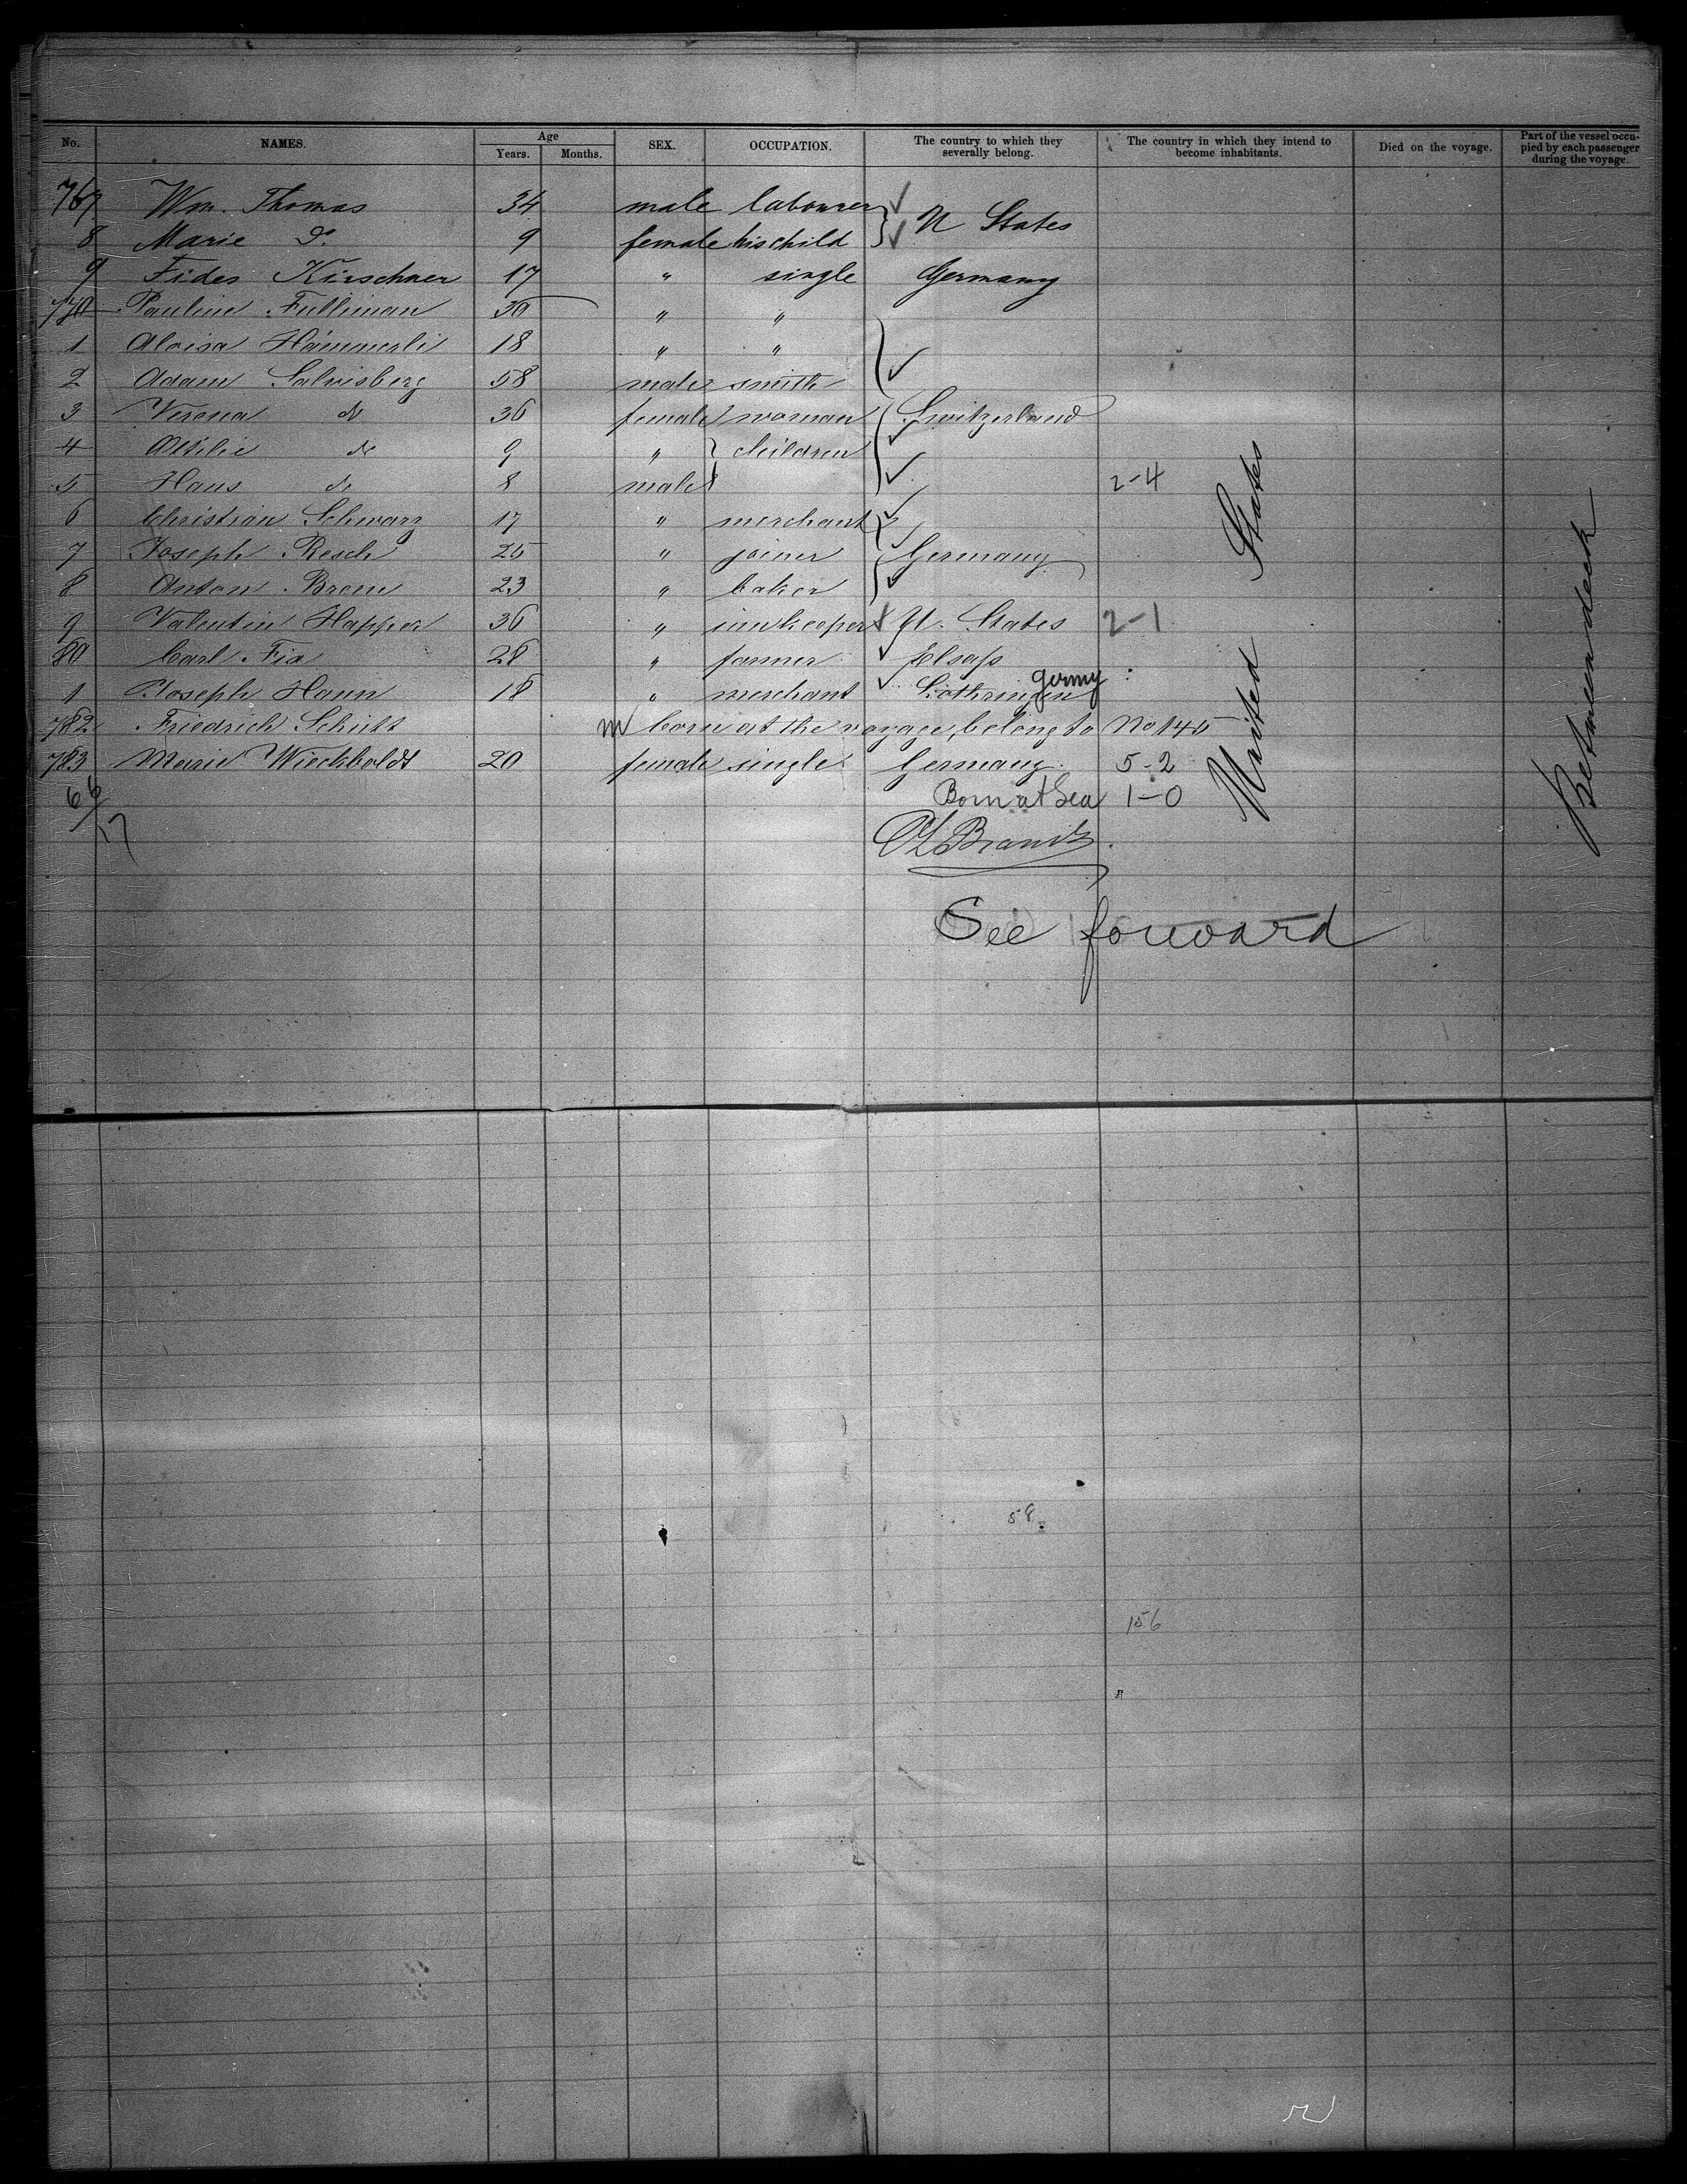 No. NAMES. Age Years. Months. SEX. OCCUPATION. The country to which they severally belong. The country in which they intend to become inhabitants. Died on the voyage. Part of the vessel occu-pied by each passenger during the voyage.
767 Wm. Thomas 34 male labourer U States
8 Marie Do. 9 female his child
9 Fides Kirschner 17 " single Germany
770 Pauline Fulliman 30 " "
1 Aloisa Hämmerli 18 " "
2 Adam Salvisberg 58 male smith
3 Verena do 36 female woman Switzerland
4 Ottilie do 9 " children
5 Hans do 8 male 2-4
6 Christian Schwarz 17 " merchant
7 Joseph Resch 25 " joiner Germany
8 Anton Brom 23 " baker
9 Valentin Happer 36 " innkeeper U. States 2-1
80 Carl Fix 28 " farmer Elsaß
1 Joseph Hann 18 " merchant Lothringen Germy
782 Friedrich Schütt m born at the voyage, belong to No 145
783 Marie Wieckboldt 20 female single Germany. 5-2
66/17 Born at Sea 1-0
United States
Between deck
See forward
58
156